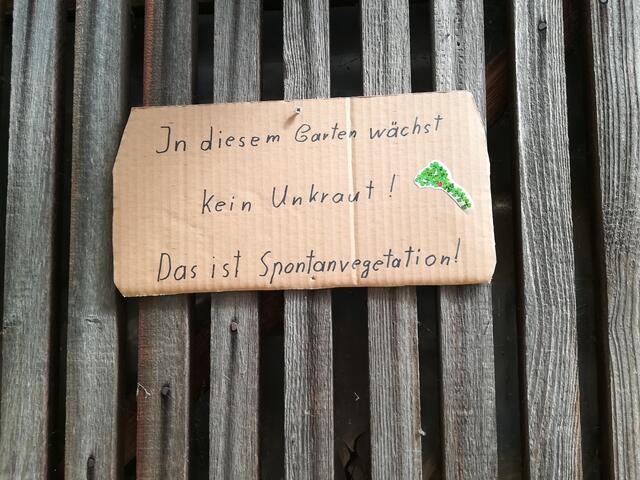 In diesem Garten wächst
kein Unkraut!
Das ist Spontanvegetation!